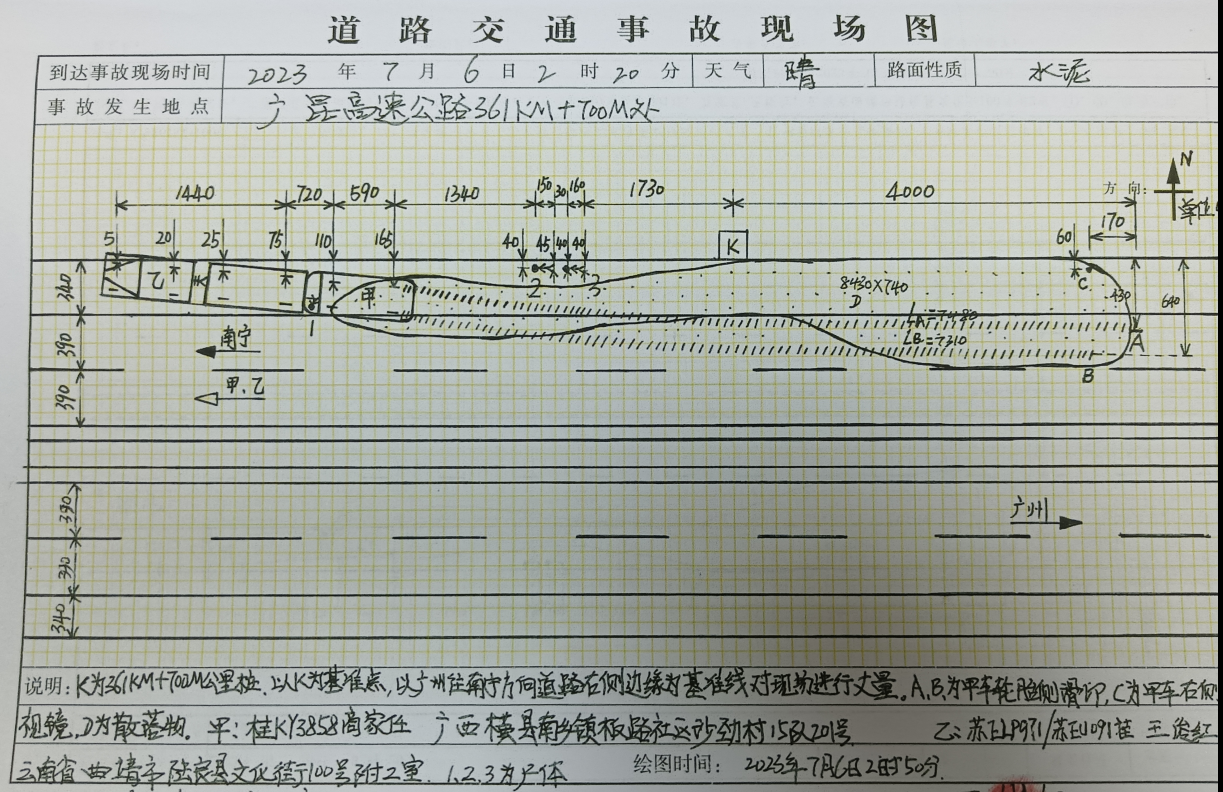 道路交通事故现场图
到达事故现场时间 2023 年 7 月 6 日 2 时 20 分 天气 晴 路面性质 水泥
事故发生地点 广昆高速公路361KM+700M处
N
方向:
1440 720 590 1340 150 30 160 1730 4000
170
5 20 25 75 110 165 40 45 40 40 K 60
乙 甲 1 2 3 C
340 390 390
8430×740
D
LA=7480
LB=7310
430 640
A
B
南宁
甲、乙
390 390 340
广州
说明: K为361KM+700M公里桩,以K为基准点,以广州往南宁方向道路右侧边缘为基准线对现场进行丈量。A,B为甲车轮胎侧滑印,C为甲车右侧
视镜,D为散落物。甲:桂KY3858 家任 广西横县南乡镇板路社区沙劲村15队201号 乙:苏ELP971/苏EU091挂 王俊红
云南省曲靖市陆良县文化街100号附2室. 1.2.3为尸体 绘图时间: 2023年7月6日2时50分.